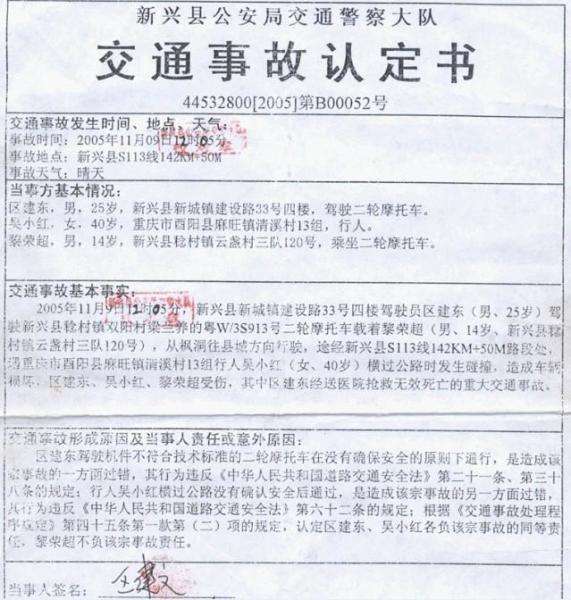 新兴县公安局交通警察大队
交通事故认定书
44532800[2005]第B00052号
交通事故发生时间、地点、天气：
事故时间：2005年11月09日12时05分
事故地点：新兴县S113线142KM+50M
事故天气：晴天
当事方基本情况：
区建东，男，25岁，新兴县新城镇建设路33号四楼，驾驶二轮摩托车。
吴小红，女，40岁，重庆市酉阳县麻旺镇清溪村13组，行人。
黎荣超，男，14岁，新兴县稔村镇云盏村三队120号，乘坐二轮摩托车。
交通事故基本事实：
2005年11月9日12时05分，新兴县新城镇建设路33号四楼驾驶员区建东（男、25岁）驾
驶新兴县稔村镇双阳村梁 养的粤W/3S913号二轮摩托车载着黎荣超（男、14岁、新兴县稔
村镇云盏村三队120号），从枫洞往县城方向行驶，途经新兴县S113线142KM+50M路段处，
遇重庆市酉阳县麻旺镇清溪村13组行人吴小红（女、40岁）横过公路时发生碰撞，造成车辆
损坏，区建东、吴小红、黎荣超受伤，其中区建东经送医院抢救无效死亡的重大交通事故。
交通事故形成原因及当事人责任或意外原因：
区建东驾驶机件不符合技术标准的二轮摩托车在没有确保安全的原则下通行，是造成该
宗事故的一方面过错，其行为违反《中华人民共和国道路交通安全法》第二十一条、第三十
八条的规定；行人吴小红横过公路没有确认安全后通过，是造成该宗事故的另一方面过错，
其行为违反《中华人民共和国道路交通安全法》第六十二条的规定；根据《交通事故处理程
序规定》第四十五条第一款第（二）项的规定，认定区建东、吴小红各负该宗事故的同等责
任，黎荣超不负该宗事故责任。
当事人签名：